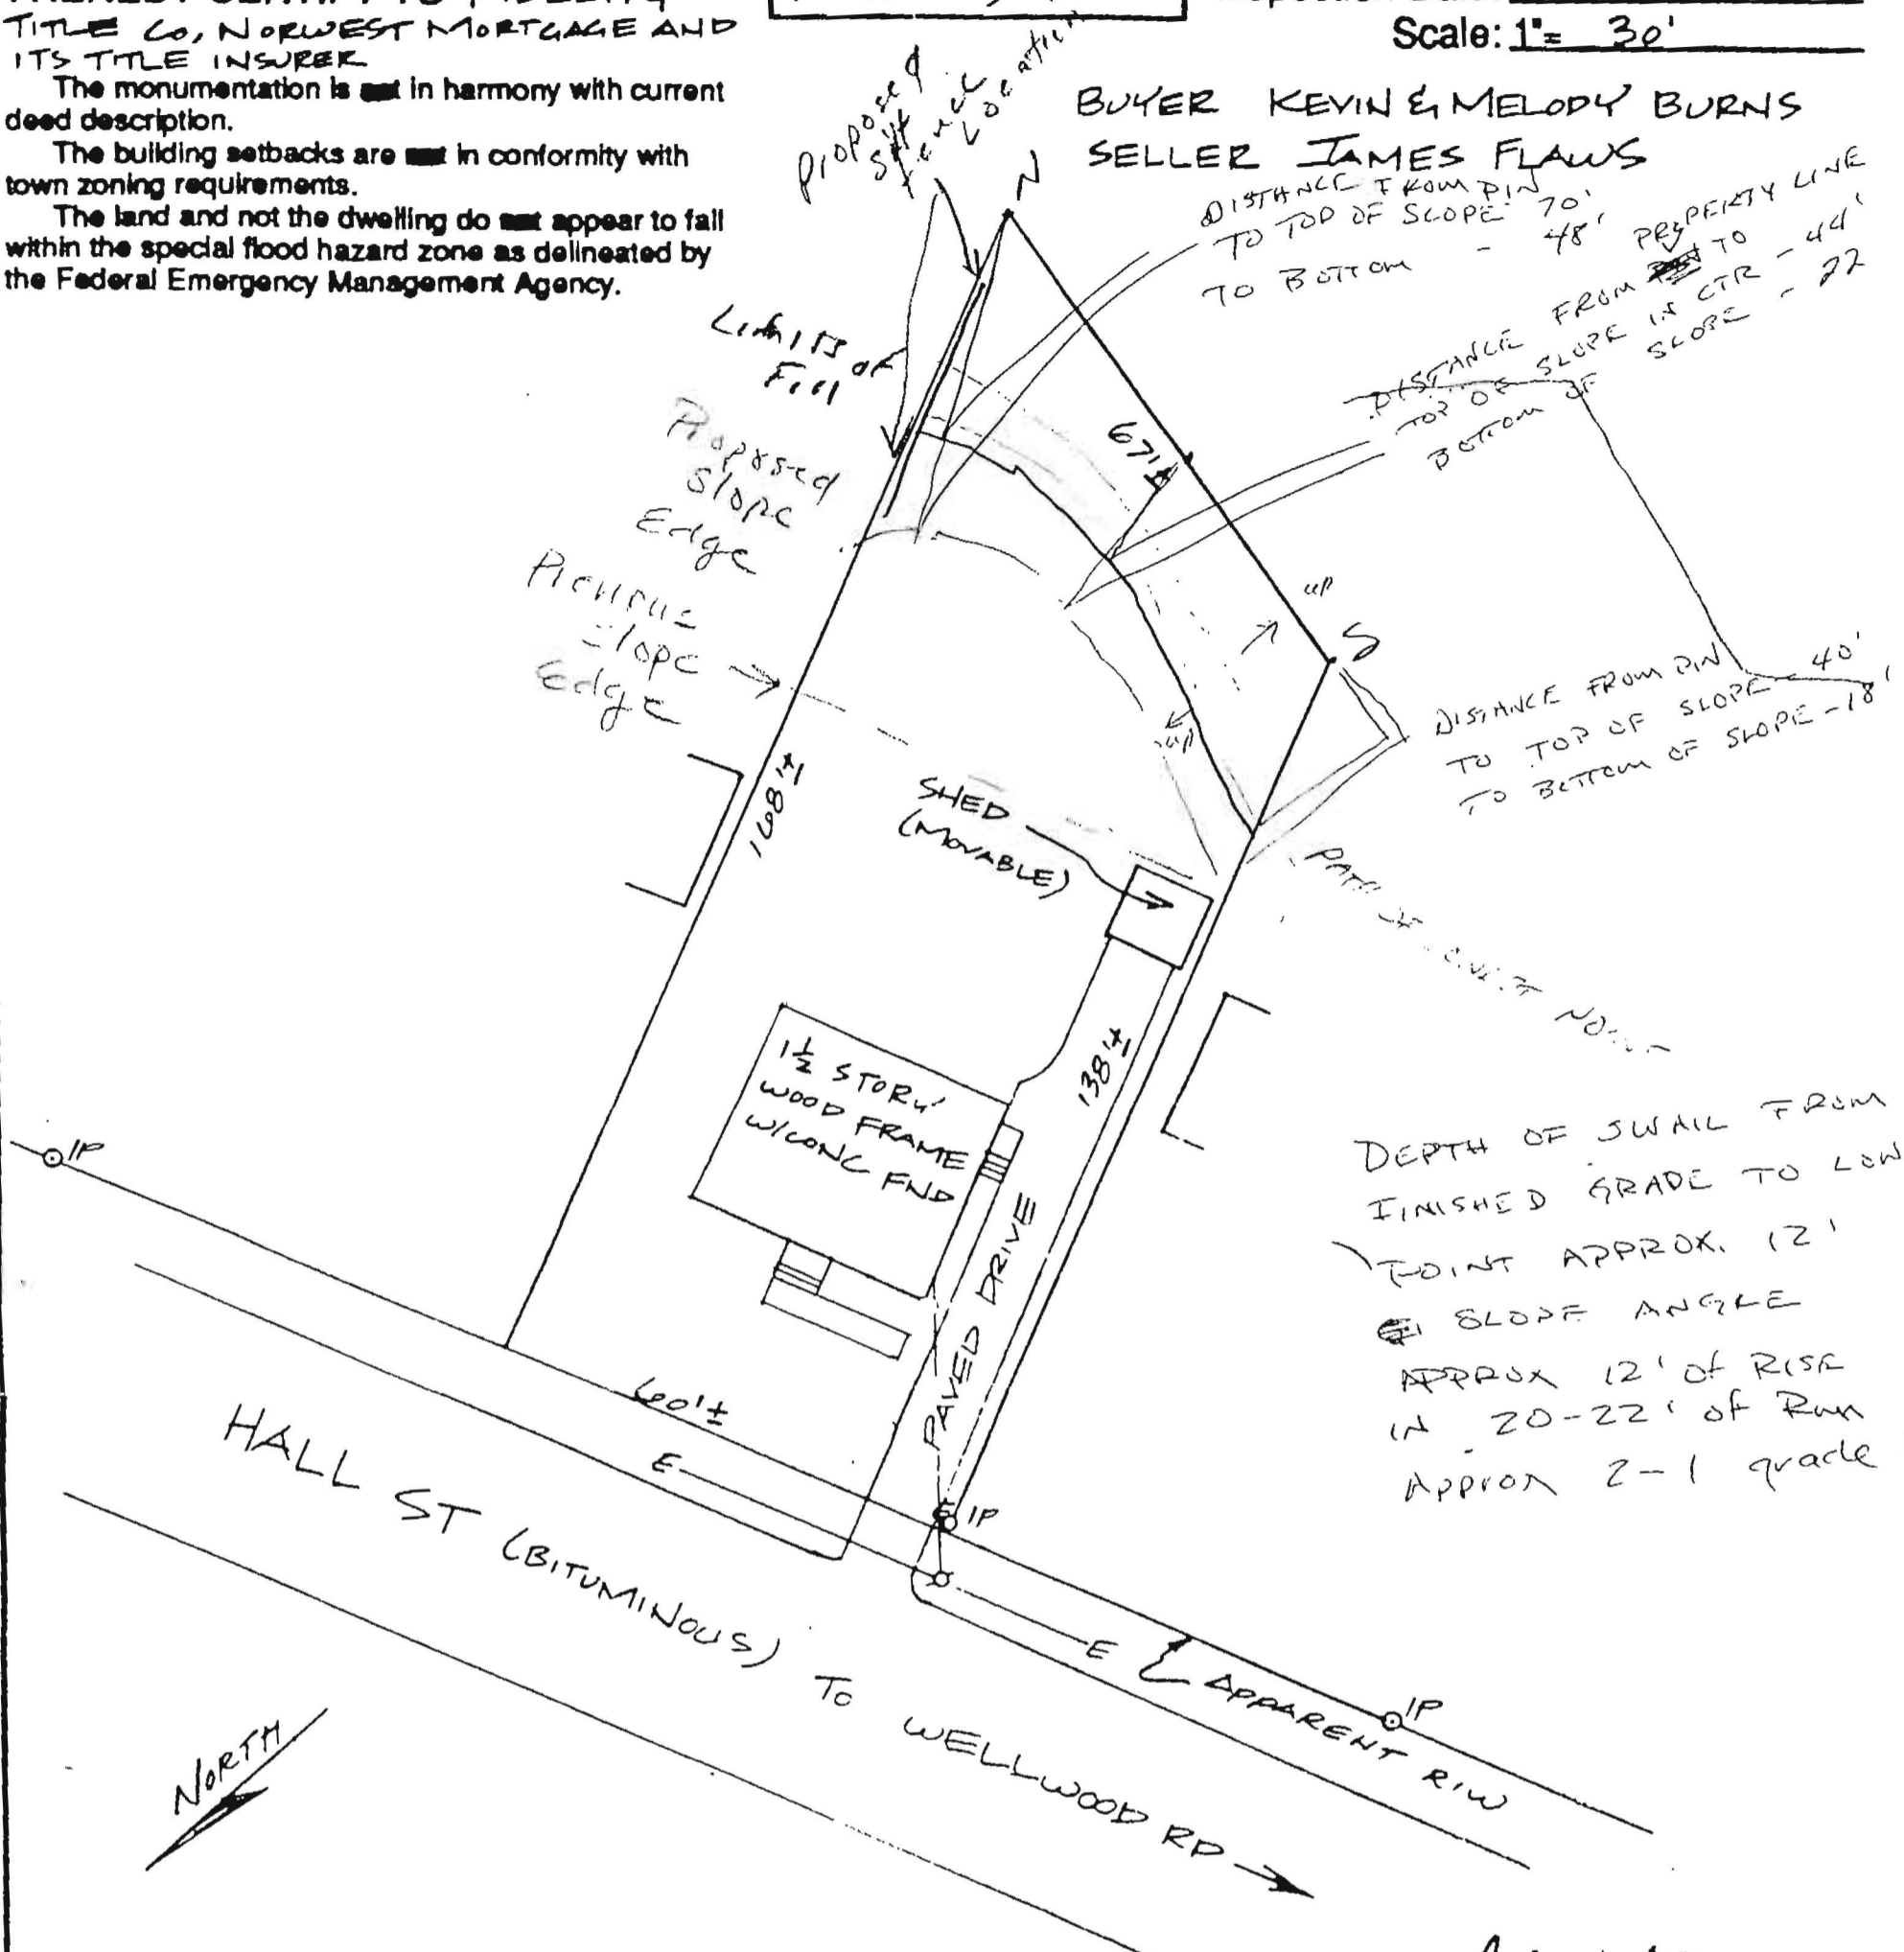 TITLE CO, NORWEST MORTGAGE AND
ITS TITLE INSURER
The monumentation is in harmony with current
deed description.
The building setbacks are in conformity with
town zoning requirements.
The land and not the dwelling do appear to fall
within the special flood hazard zone as delineated by
the Federal Emergency Management Agency.
Scale: 1"= 30'
BUYER KEVIN & MELODY BURNS
SELLER JAMES FLAWS
Proposed
Silt
Fence
Location
N
DISTANCE FROM PIN
TO TOP OF SLOPE 70'
TO BOTTOM - 48'
DISTANCE FROM PROPERTY LINE TO
TOP OF SLOPE IN CTR - 44'
BOTTOM OF SLOPE - 22
Limits of
Fill
Proposed
Slope
Edge
Previous
Slope
Edge
67'±
up
S
up
DISTANCE FROM PIN
TO TOP OF SLOPE - 40'
TO BOTTOM OF SLOPE - 18'
168'±
SHED
(MOVABLE)
138'±
1½ STORY
WOOD FRAME
W/CONC FND
PAVED DRIVE
DEPTH OF SWAIL FROM
FINISHED GRADE TO LOW
POINT APPROX. 12'
SLOPE ANGLE
APPROX 12' of RISE
IN 20-22' of Run
Approx 2-1 grade
IP
60'±
E
IP
E
APPARENT R/W
IP
HALL ST (BITUMINOUS) TO WELLWOOD RD
NORTH